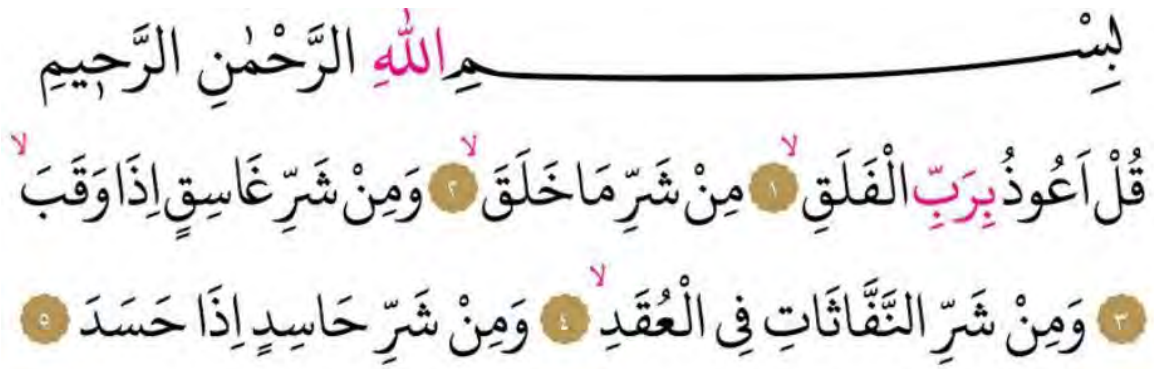 بِسْــــــــــــمِ اللّٰهِ الرَّحْمٰنِ الرَّحٖيمِ
قُلْ اَعُوذُ بِرَبِّ الْفَلَقِۙ ١ مِنْ شَرِّ مَا خَلَقَۙ ٢ وَمِنْ شَرِّ غَاسِقٍ اِذَا وَقَبَۙ
٣ وَمِنْ شَرِّ النَّفَّاثَاتِ فِى الْعُقَدِۙ ٤ وَمِنْ شَرِّ حَاسِدٍ اِذَا حَسَدَ ٥